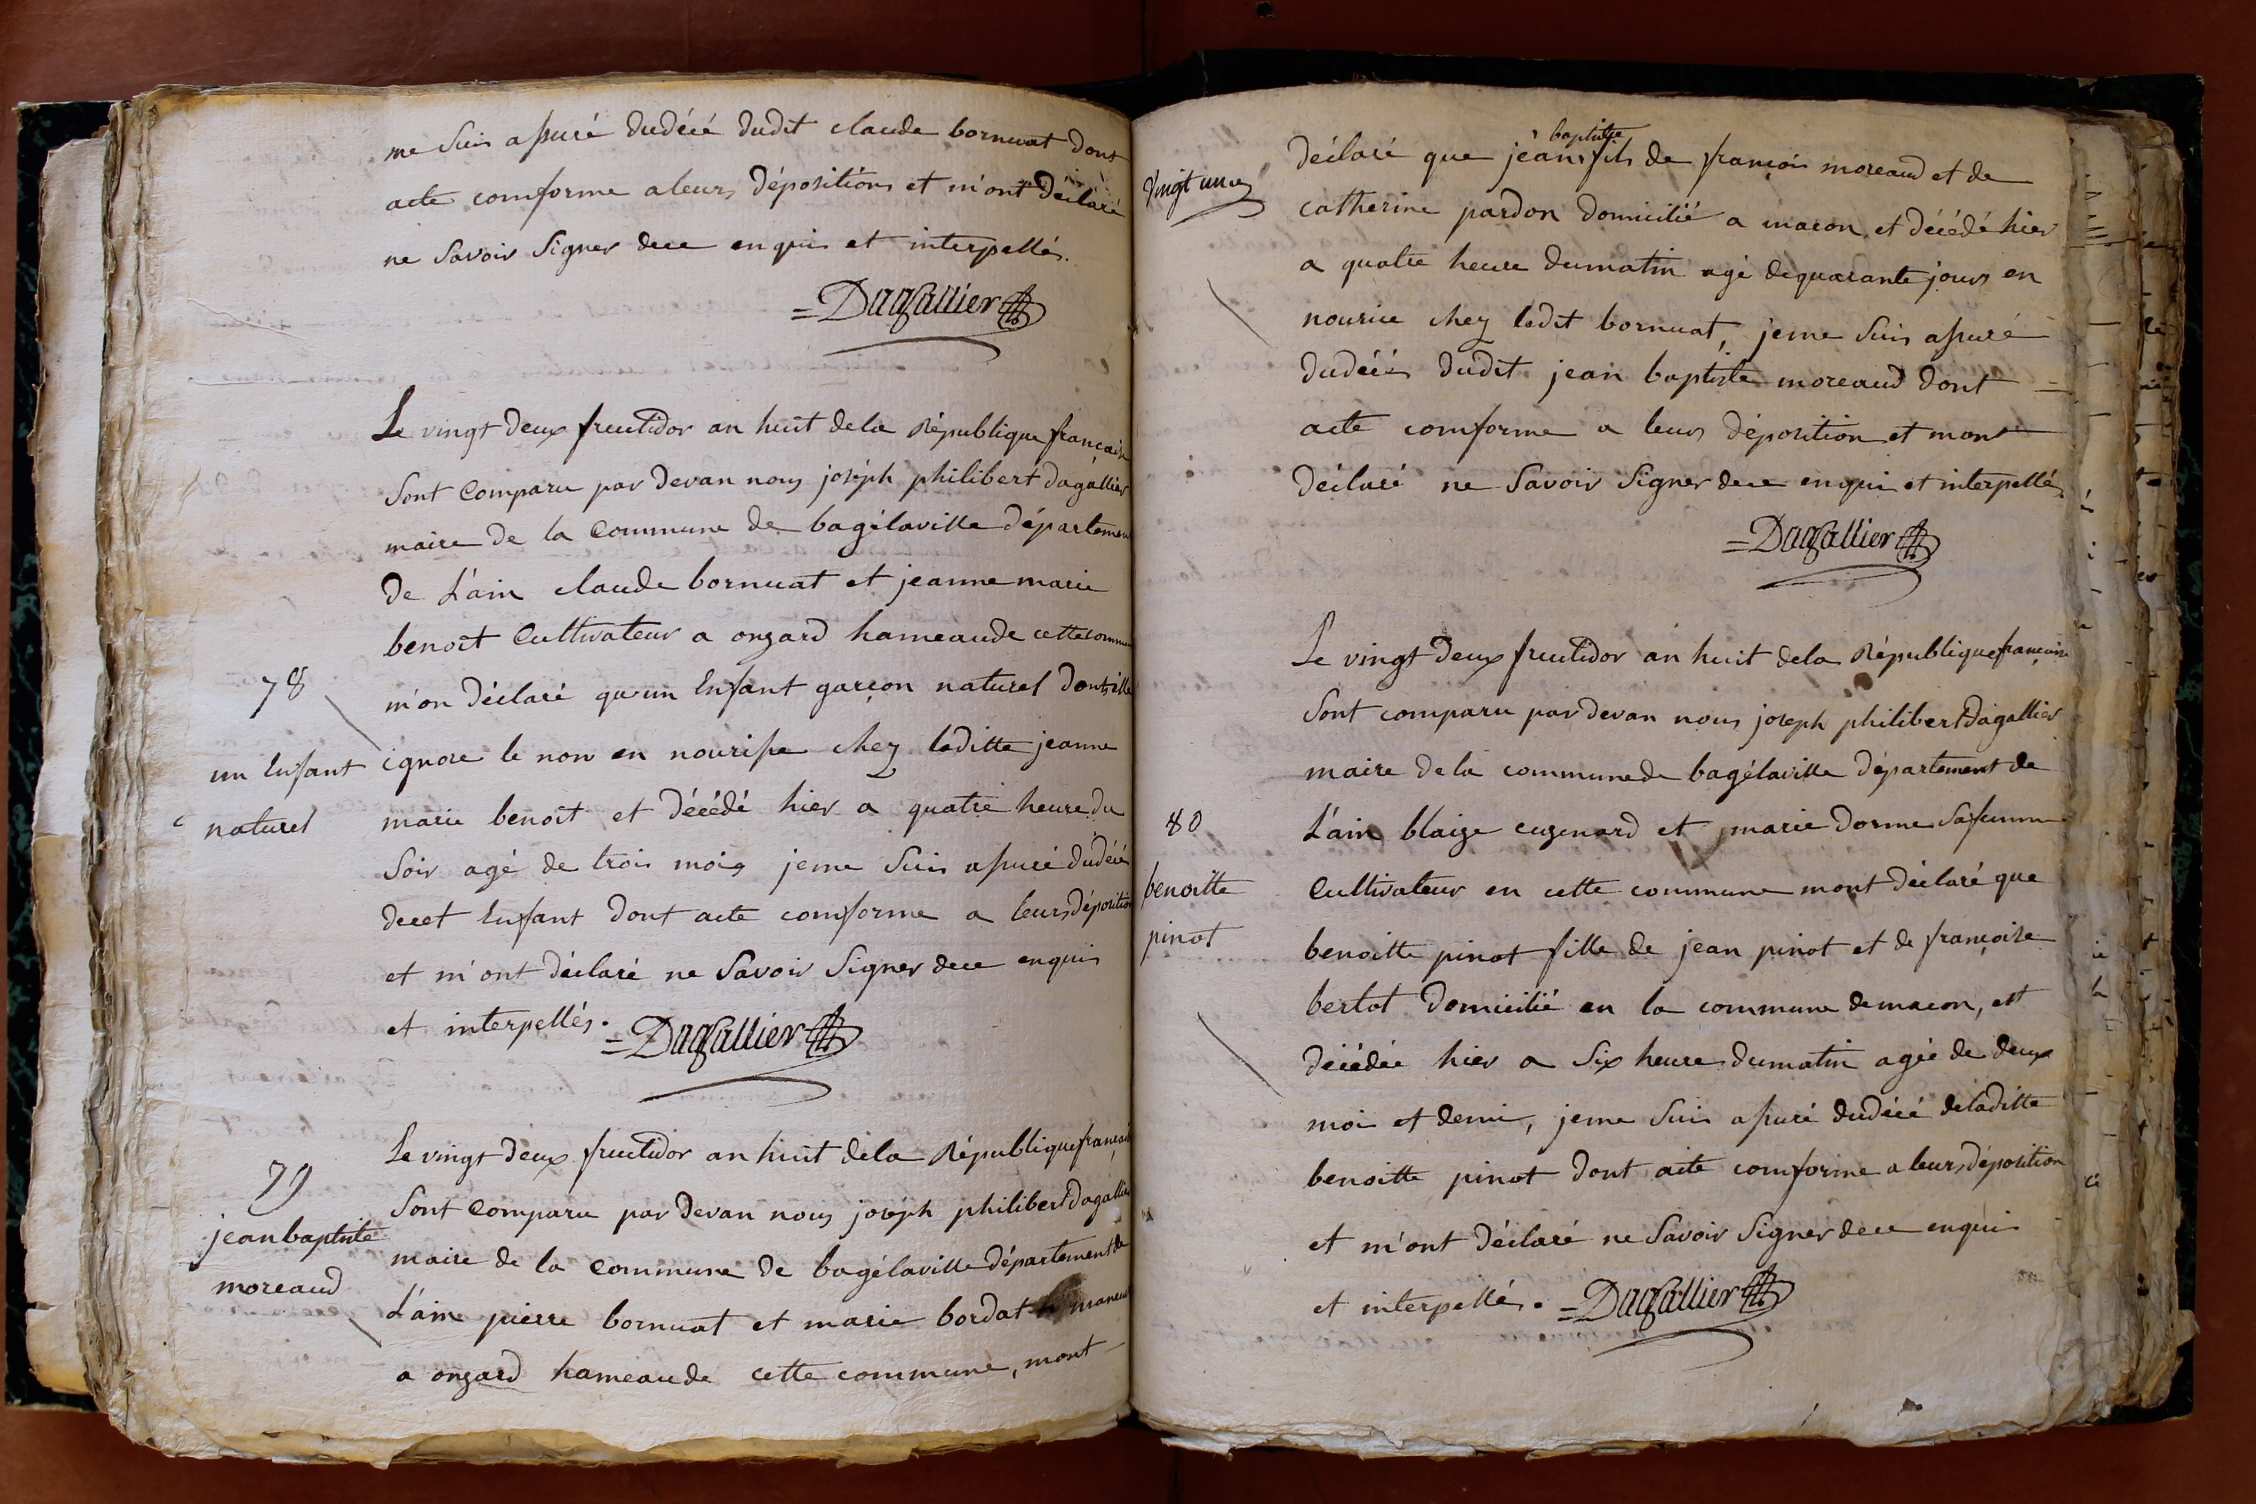 me suis assuré dudécé dudit claude bornuat dont
acte comforme aleurs dépositions et m'ont déclaré
ne Savoir Signer dece enquis et interpellés.
=Dagallier
Le vingt deux fructidor an huit dela République française
Sont Comparu par devan nous joséph philibert dagallier
maire de la Commune de bagélaville département
de L'ain claude bornuat et jeanne marie
benoit Cultivateur a onzard hameaude cette commune
78
m'on déclaré qu'un Enfant garçon naturel dont ille
un Enfant
naturel
ignore le non en nourisse chez laditte jeanne
marie benoit et décédé hier a quatre heure du
Soir agé de trois mois jeme Suis assuré dudécé
decet Enfant dont acte comforme a leurs déposition
et m'ont déclaré ne Savoir Signer dece enquis
et interpellés. =Dagallier
79
jean baptiste
moreaud
Le vingt deux fructidor an huit dela République français
Sont Comparu par devan nous joséph philibert dagallier
maire de la Commune de bagélaville département de
L'ain pierre bornuat et marie bordat
a onzard hameaude cette commune, mont
vingt une
baptiste
déclaré que jean fils de françois moreaud et de
catherine pardon domicilié a macon et décédé hier
a quatre heure dumatin agé dequarante jours en
nourice chez ledit bornuat, jeme Suis assuré
dudécés dudit jean baptiste moreaud dont
acte comforme a leurs déposition et mont
déclaré ne Savoir Signer dece enquis et interpellés
=Dagallier
Le vingt deux fructidor an huit dela République française
Sont comparu par devan nous joseph philibert dagallier
maire dela communede bagélaville département de
80
benoitte
pinot
L'ain blaize cuzenard et marie dorme Safemme
Cultivateur en cette commune mont déclaré que
benoitte pinot fille de jean pinot et de françoise
bertot domicilié en la commune demacon, est
décédée hier a Six heure dumatin agée de deux
moi et demi, jeme Suis assuré dudécé deladitte
benoitte pinot dont acte comforme a leurs déposition
et m'ont déclaré ne Savoir Signer dece enquis
et interpellés. =Dagallier